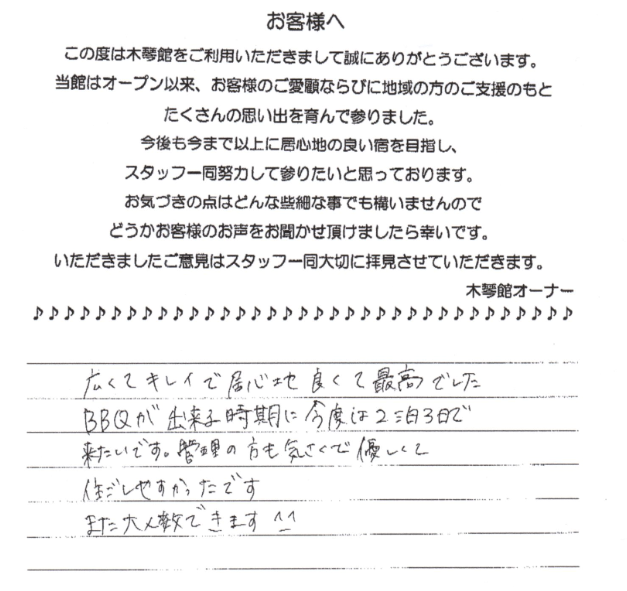 お客様へ
この度は木琴館をご利用いただきまして誠にありがとうございます。
当館はオープン以来、お客様のご愛顧ならびに地域の方のご支援のもと
たくさんの思い出を育んで参りました。
今後も今まで以上に居心地の良い宿を目指し、
スタッフ一同努力して参りたいと思っております。
お気づきの点はどんな些細な事でも構いませんので
どうかお客様のお声をお聞かせ頂けましたら幸いです。
いただきましたご意見はスタッフ一同大切に拝見させていただきます。
木琴館オーナー
♪♪♪♪♪♪♪♪♪♪♪♪♪♪♪♪♪♪♪♪♪♪♪♪♪♪♪♪♪♪♪♪♪♪♪
広くてキレイで居心地良くて最高でした
BBQが出来る時期に今度は2泊3日で
来たいです。管理の方も気さくで優しくて
すごしやすかったです
また大人数できます ^^